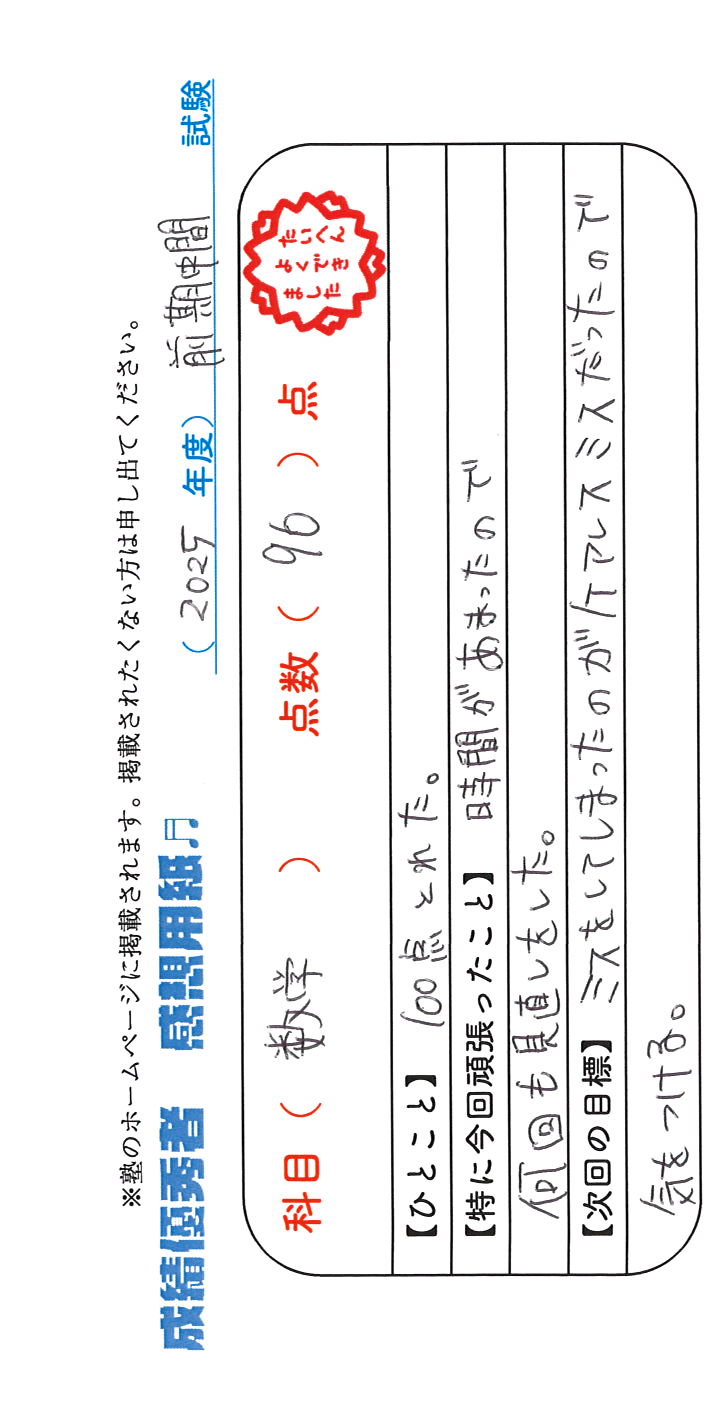 ※塾のホームページに掲載されます。掲載されたくない方は申し出てください。
成績優秀者 感想用紙♫ (2025 年度) 前期中間 試験
科目( 数学 ) 点数( 96 )点
たいへん
よくでき
ました
【ひとこと】 100点とれた。
【特に今回頑張ったこと】 時間があまったので
何回も見直しをした。
【次回の目標】 ミスをしてしまったのがケアレスミスだったので
気をつける。